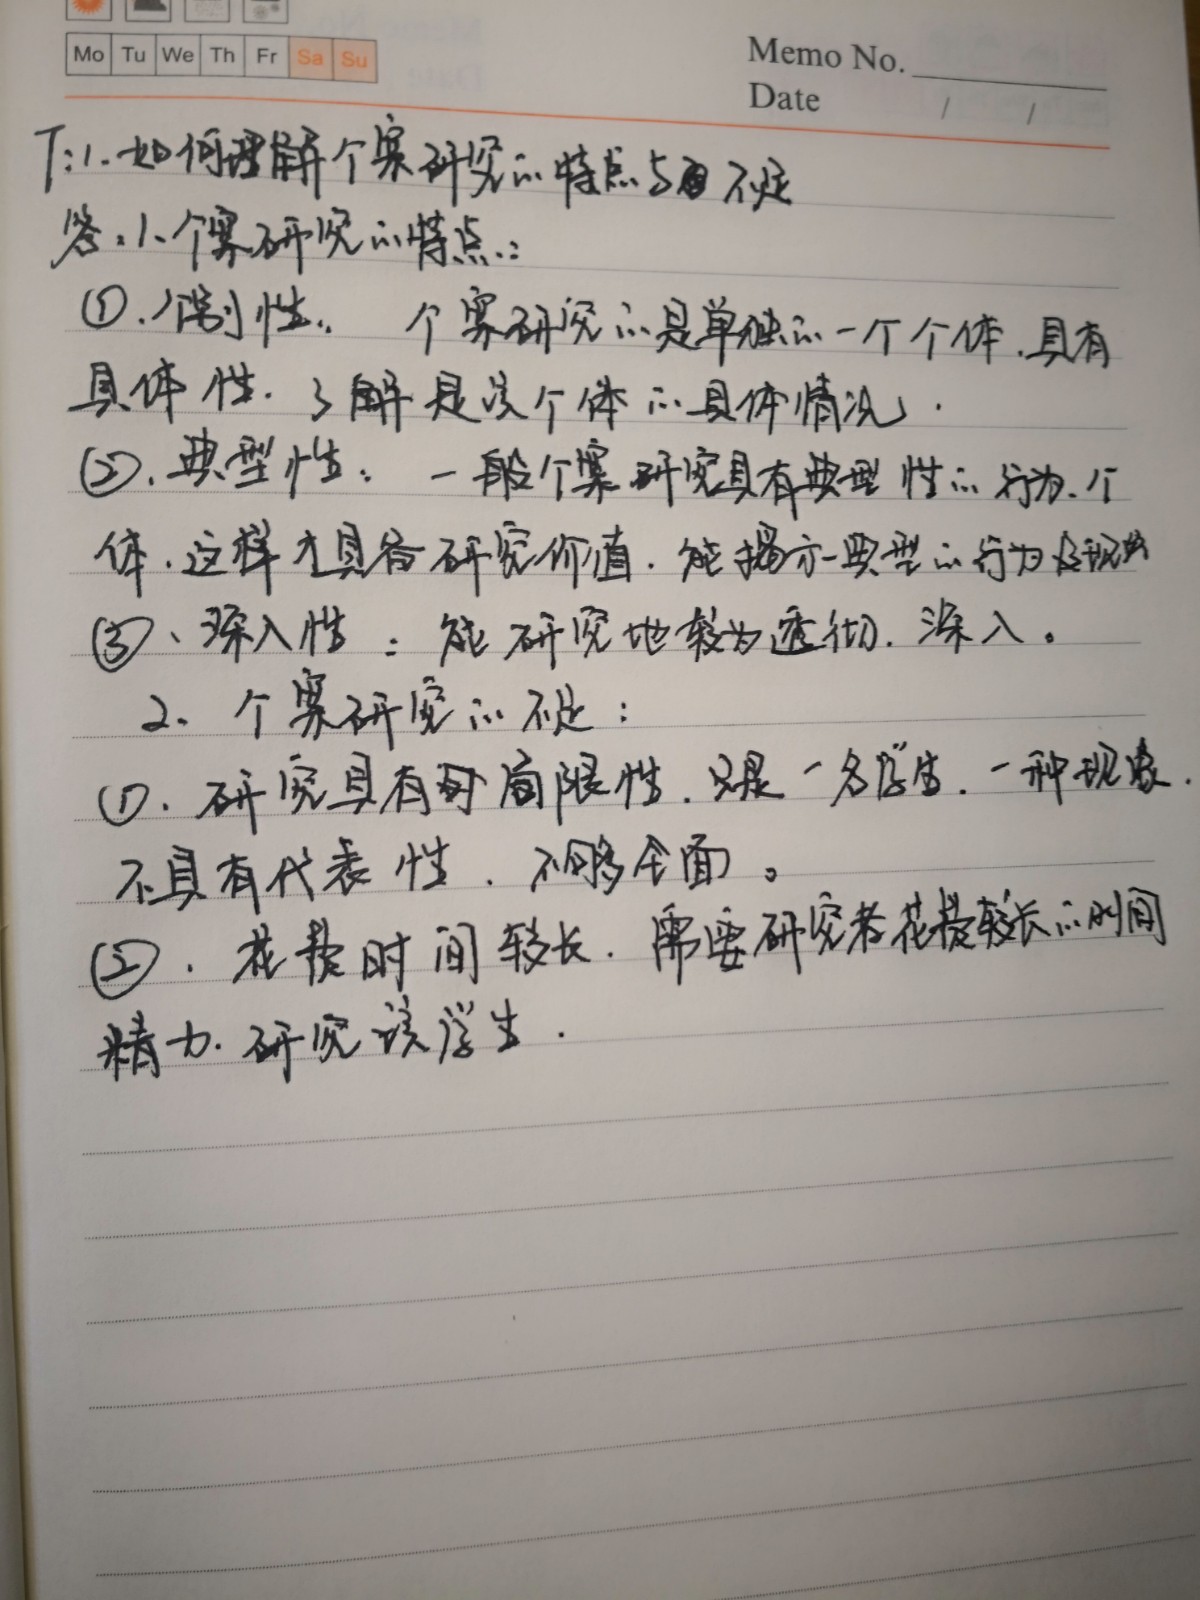 Mo Tu We Th Fr Sa Su
Memo No.
Date / /
T:1.如何理解个案研究的特点与不足
答:1、个案研究的特点:
①.个别性: 个案研究的是单独的一个个体.具有
具体性.了解是这个体的具体情况.
②.典型性: 一般个案研究具有典型性的行为、个
体.这样才具备研究价值.能揭示一典型的行为及现象
③、深入性:能研究地较为透彻.深入。
2、个案研究的不足:
①.研究具有局限性.只是一名学生.一种现象.
不具有代表性.不够全面。
②.花费时间较长.需要研究者花费较长的时间
精力.研究该学生.